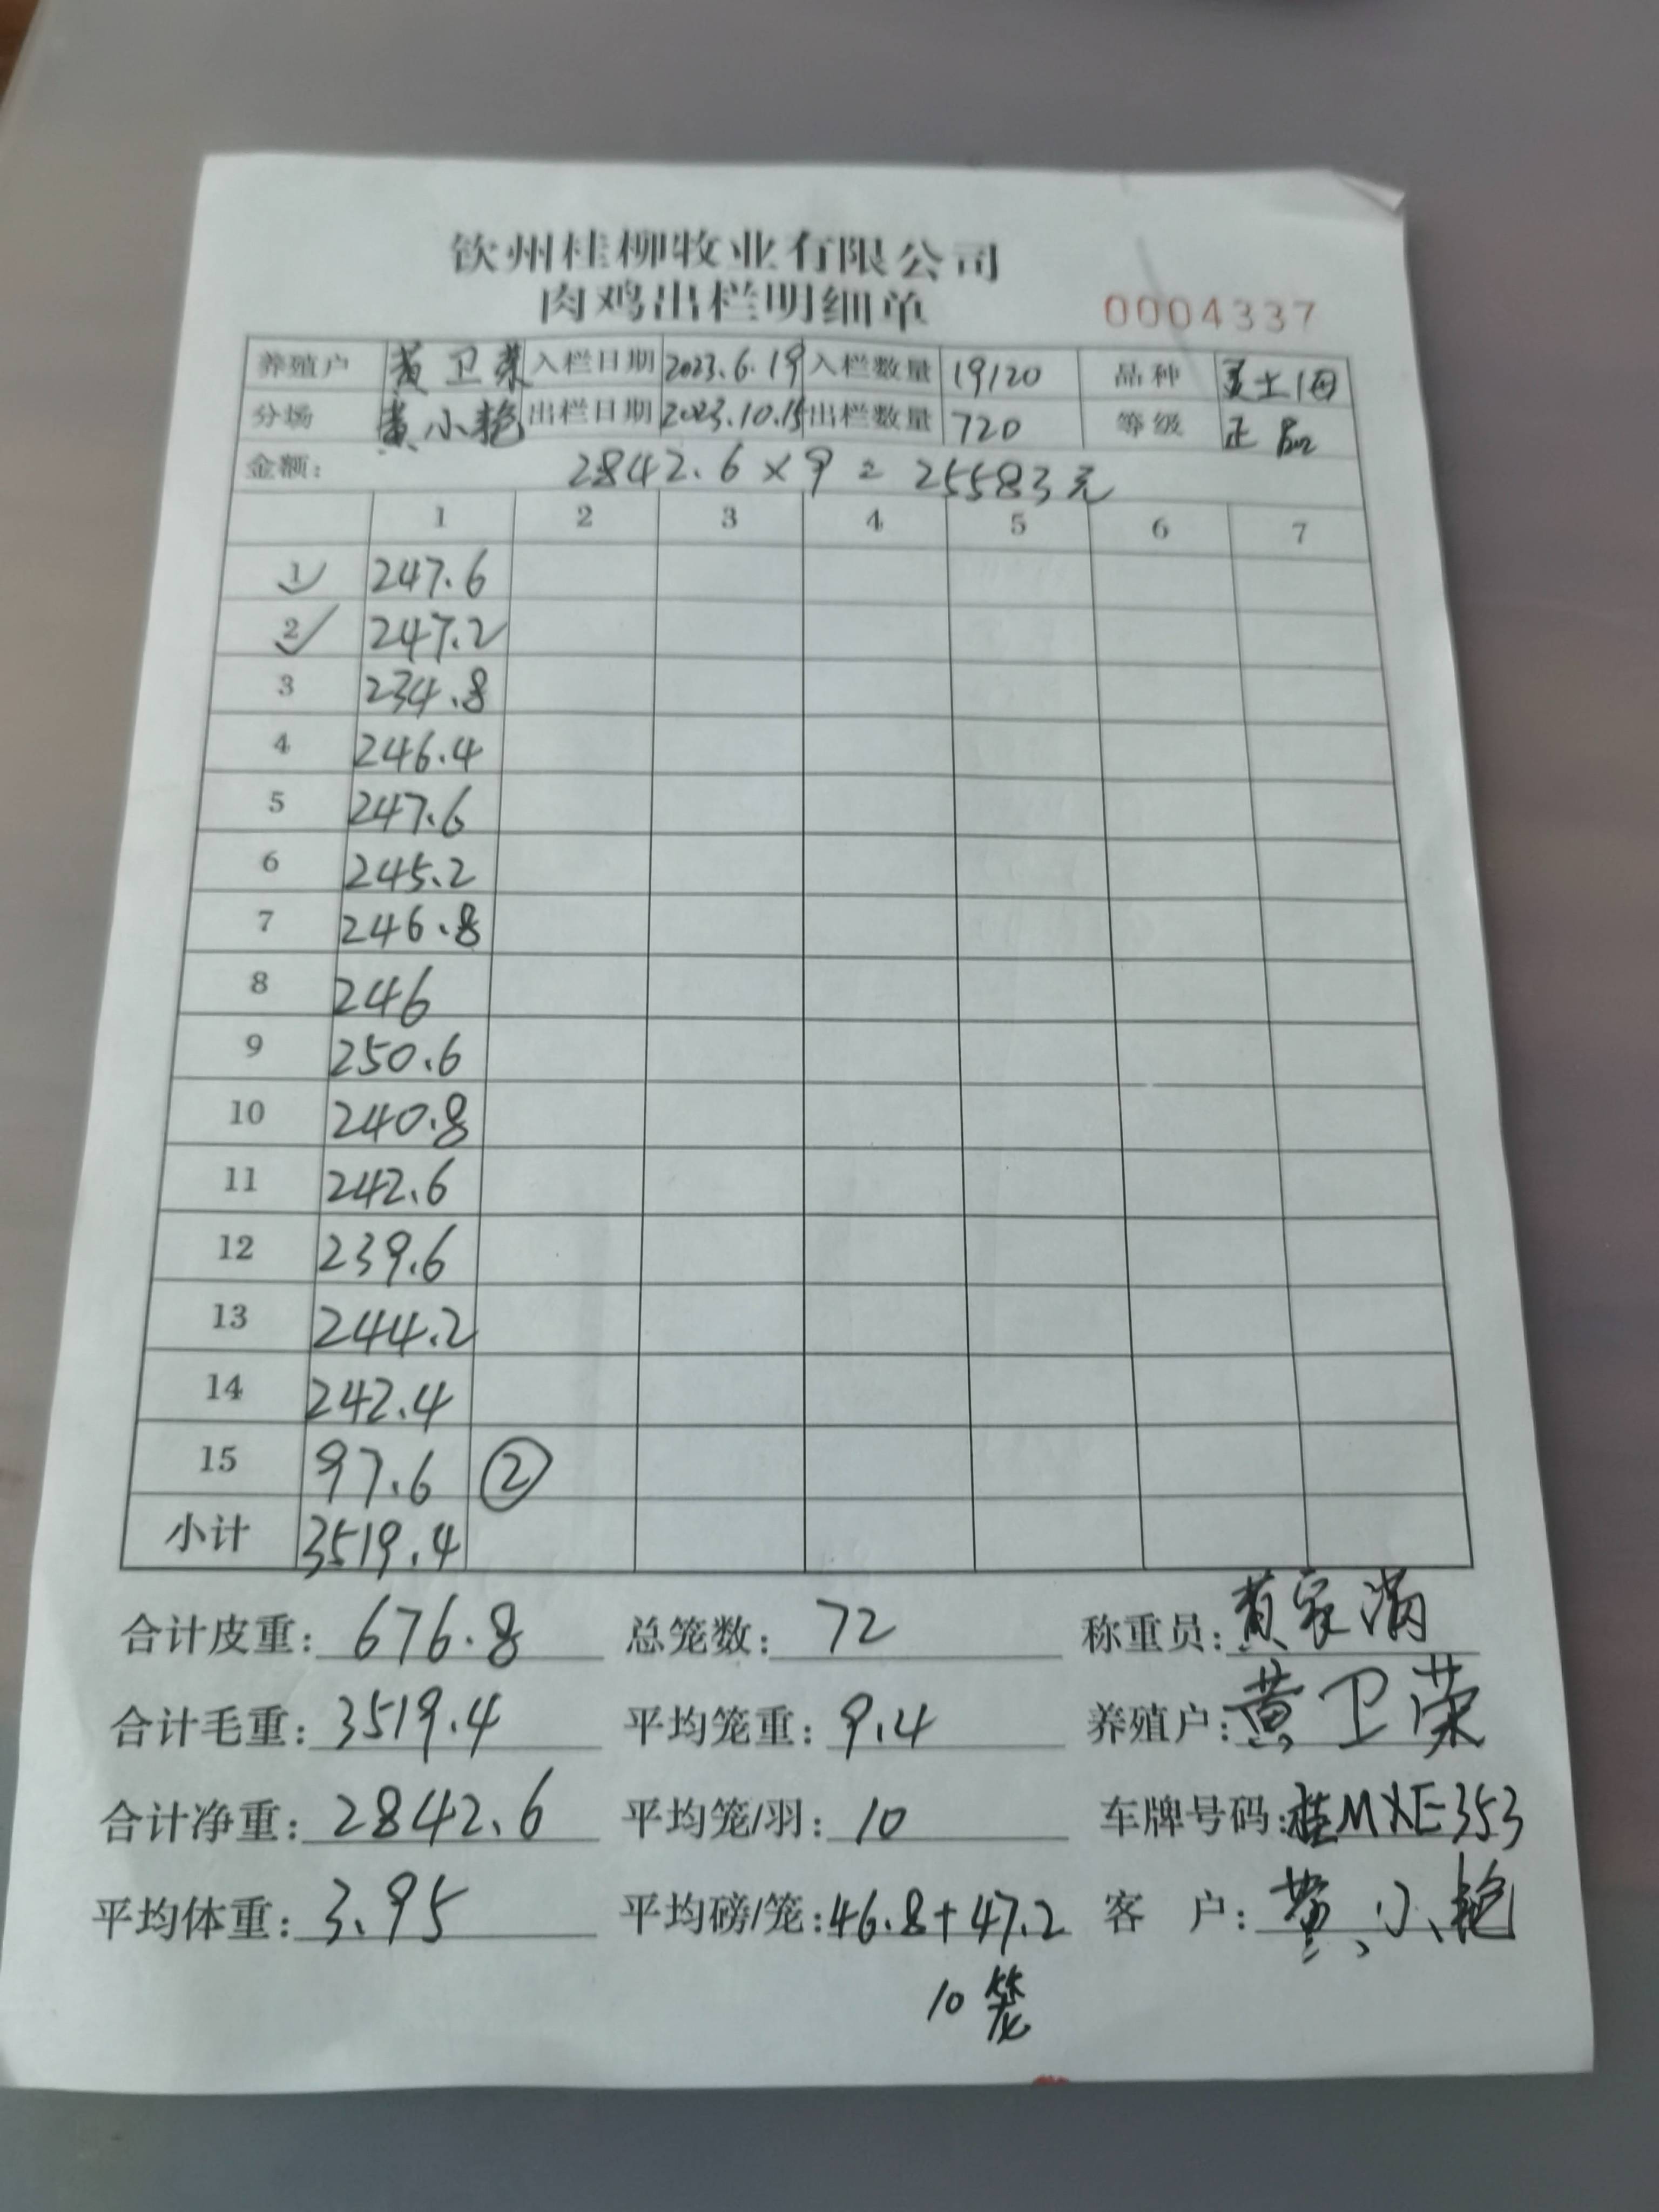 钦州桂柳牧业有限公司
肉鸡出栏明细单 0004337
养殖户 黄卫荣 入栏日期 2023.6.19 入栏数量 19120 品种 土
分场 黄小艳 出栏日期 2023.10.15 出栏数量 720 等级 正品
金额: 2842.6×9=25583元
1 2 3 4 5 6 7
1 247.6
2 247.2
3 234.8
4 246.4
5 247.6
6 245.2
7 246.8
8 246
9 250.6
10 240.8
11 242.6
12 239.6
13 244.2
14 242.4
15 97.6 ②
小计 3519.4
合计皮重: 676.8 总笼数: 72 称重员: 黄家满
合计毛重: 3519.4 平均笼重: 9.4 养殖户: 黄卫荣
合计净重: 2842.6 平均笼/羽: 10 车牌号码: 桂MXE353
平均体重: 3.95 平均磅/笼: 46.8+47.2 客户: 黄小艳
10笼